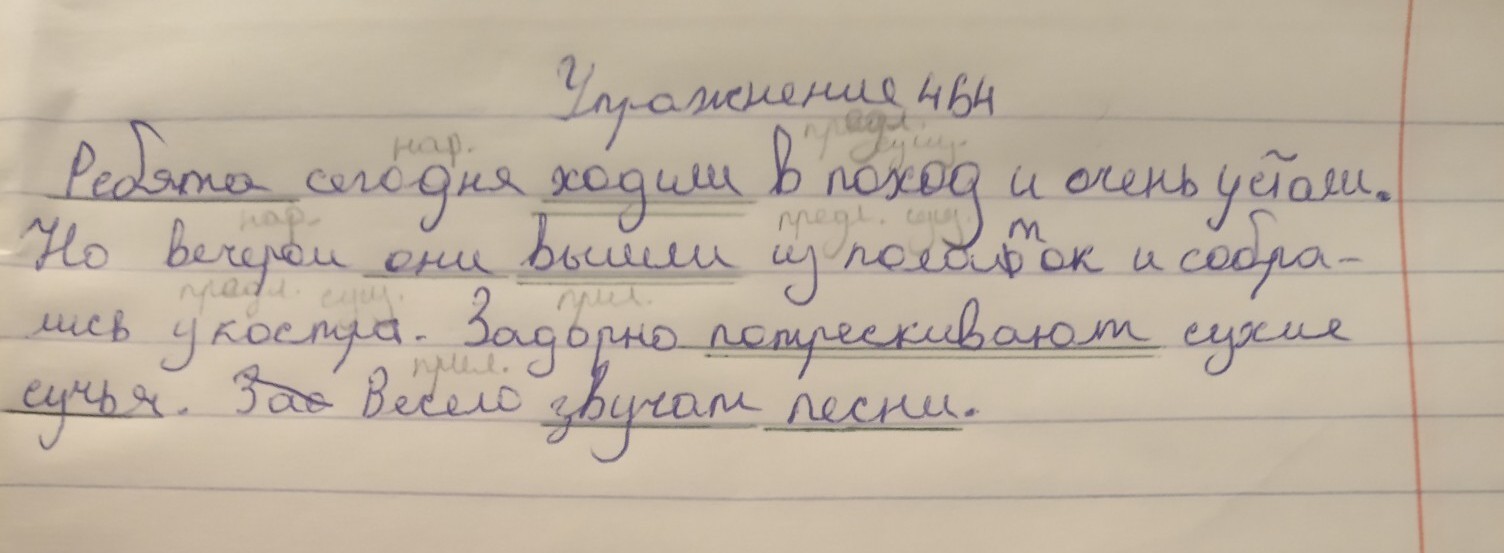 Упражнение 464
нар. предл. сущ.
Ребята сегодня ходили в поход и очень устали.
нар. предл. сущ.
Но вечером они вышли из палаток и собра-
предл. сущ. прил.
лись у костра. Задорно потрескивают сухие
прил.
сучья. Зао Весело звучат песни.